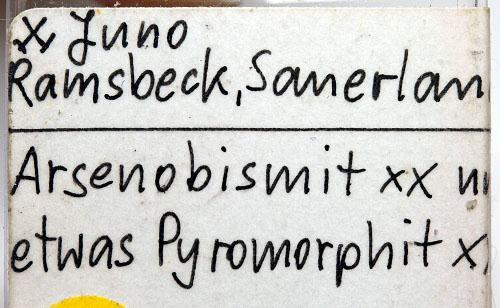 x Juno
Ramsbeck, Sauerlan
Arsenobismit xx u
etwas Pyromorphit x